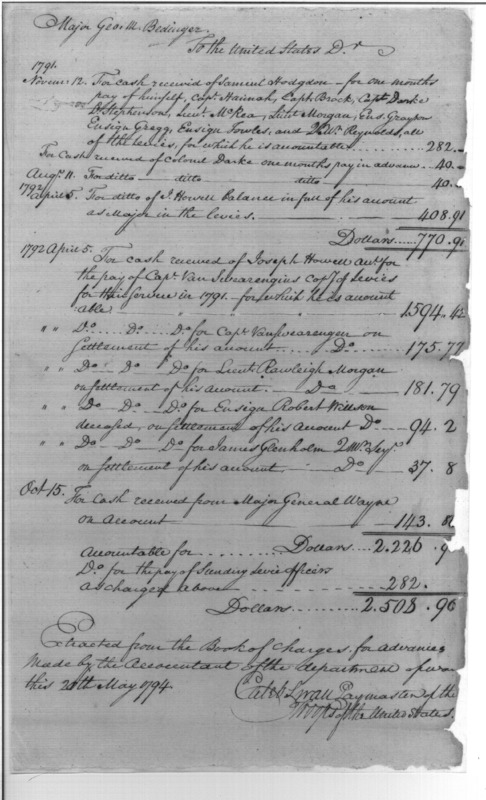 Major Geo. M. Bedinger.
To the United States Dr
1791.
Novem 12. For cash received of Samuel Hodgdon for one months
pay of himself, Capt Hannah, Capt Brock, Capt Darke
Dr Stephenson, Lieut McRea, Lieut Morgan, Ens Grayson
Ensign Gregg, Ensign Towles, and Qr Mr Reynolds, all
of the levies, for which he is accountable 282.
For Cash received of Colonel Darke one months pay in advance 40.
Augt 11. For ditto ditto ditto 40.
1792
April 5. For ditto of J. Howell balance in full of his account
as Major in the levies. 408.91
Dollars 770.91
1792 April 5. For cash received of Joseph Howell Acct for
the pay of Capt Van Swearengins Compy of Levies
for their service in 1791 for which he is account
able 1594.42
" " Do Do Do for Capt Van Swearengen on
Settlement of his account Do 175.77
" " Do Do Do for Lieut Rawleigh Morgan
on settlement of his account Do 181.79
" " Do Do Do for Ensign Robert Willson
deceased, on settlement of his account Do 94.2
" " Do Do Do for James Glenholm Qr Mr Serjt
on settlement of his account Do 37.8
Oct 15. For cash received from Major General Wayne
on account 143.
accountable for Dollars 2.226.9
Do for the pay of Sundry Levie officers
as charged above 282.
Dollars 2.508.96
Extracted from the Book of Charges for advances
Made by the Accountant of the department of war
this 20th May 1794
Caleb Swan Paymaster of the
Troops of the United States.